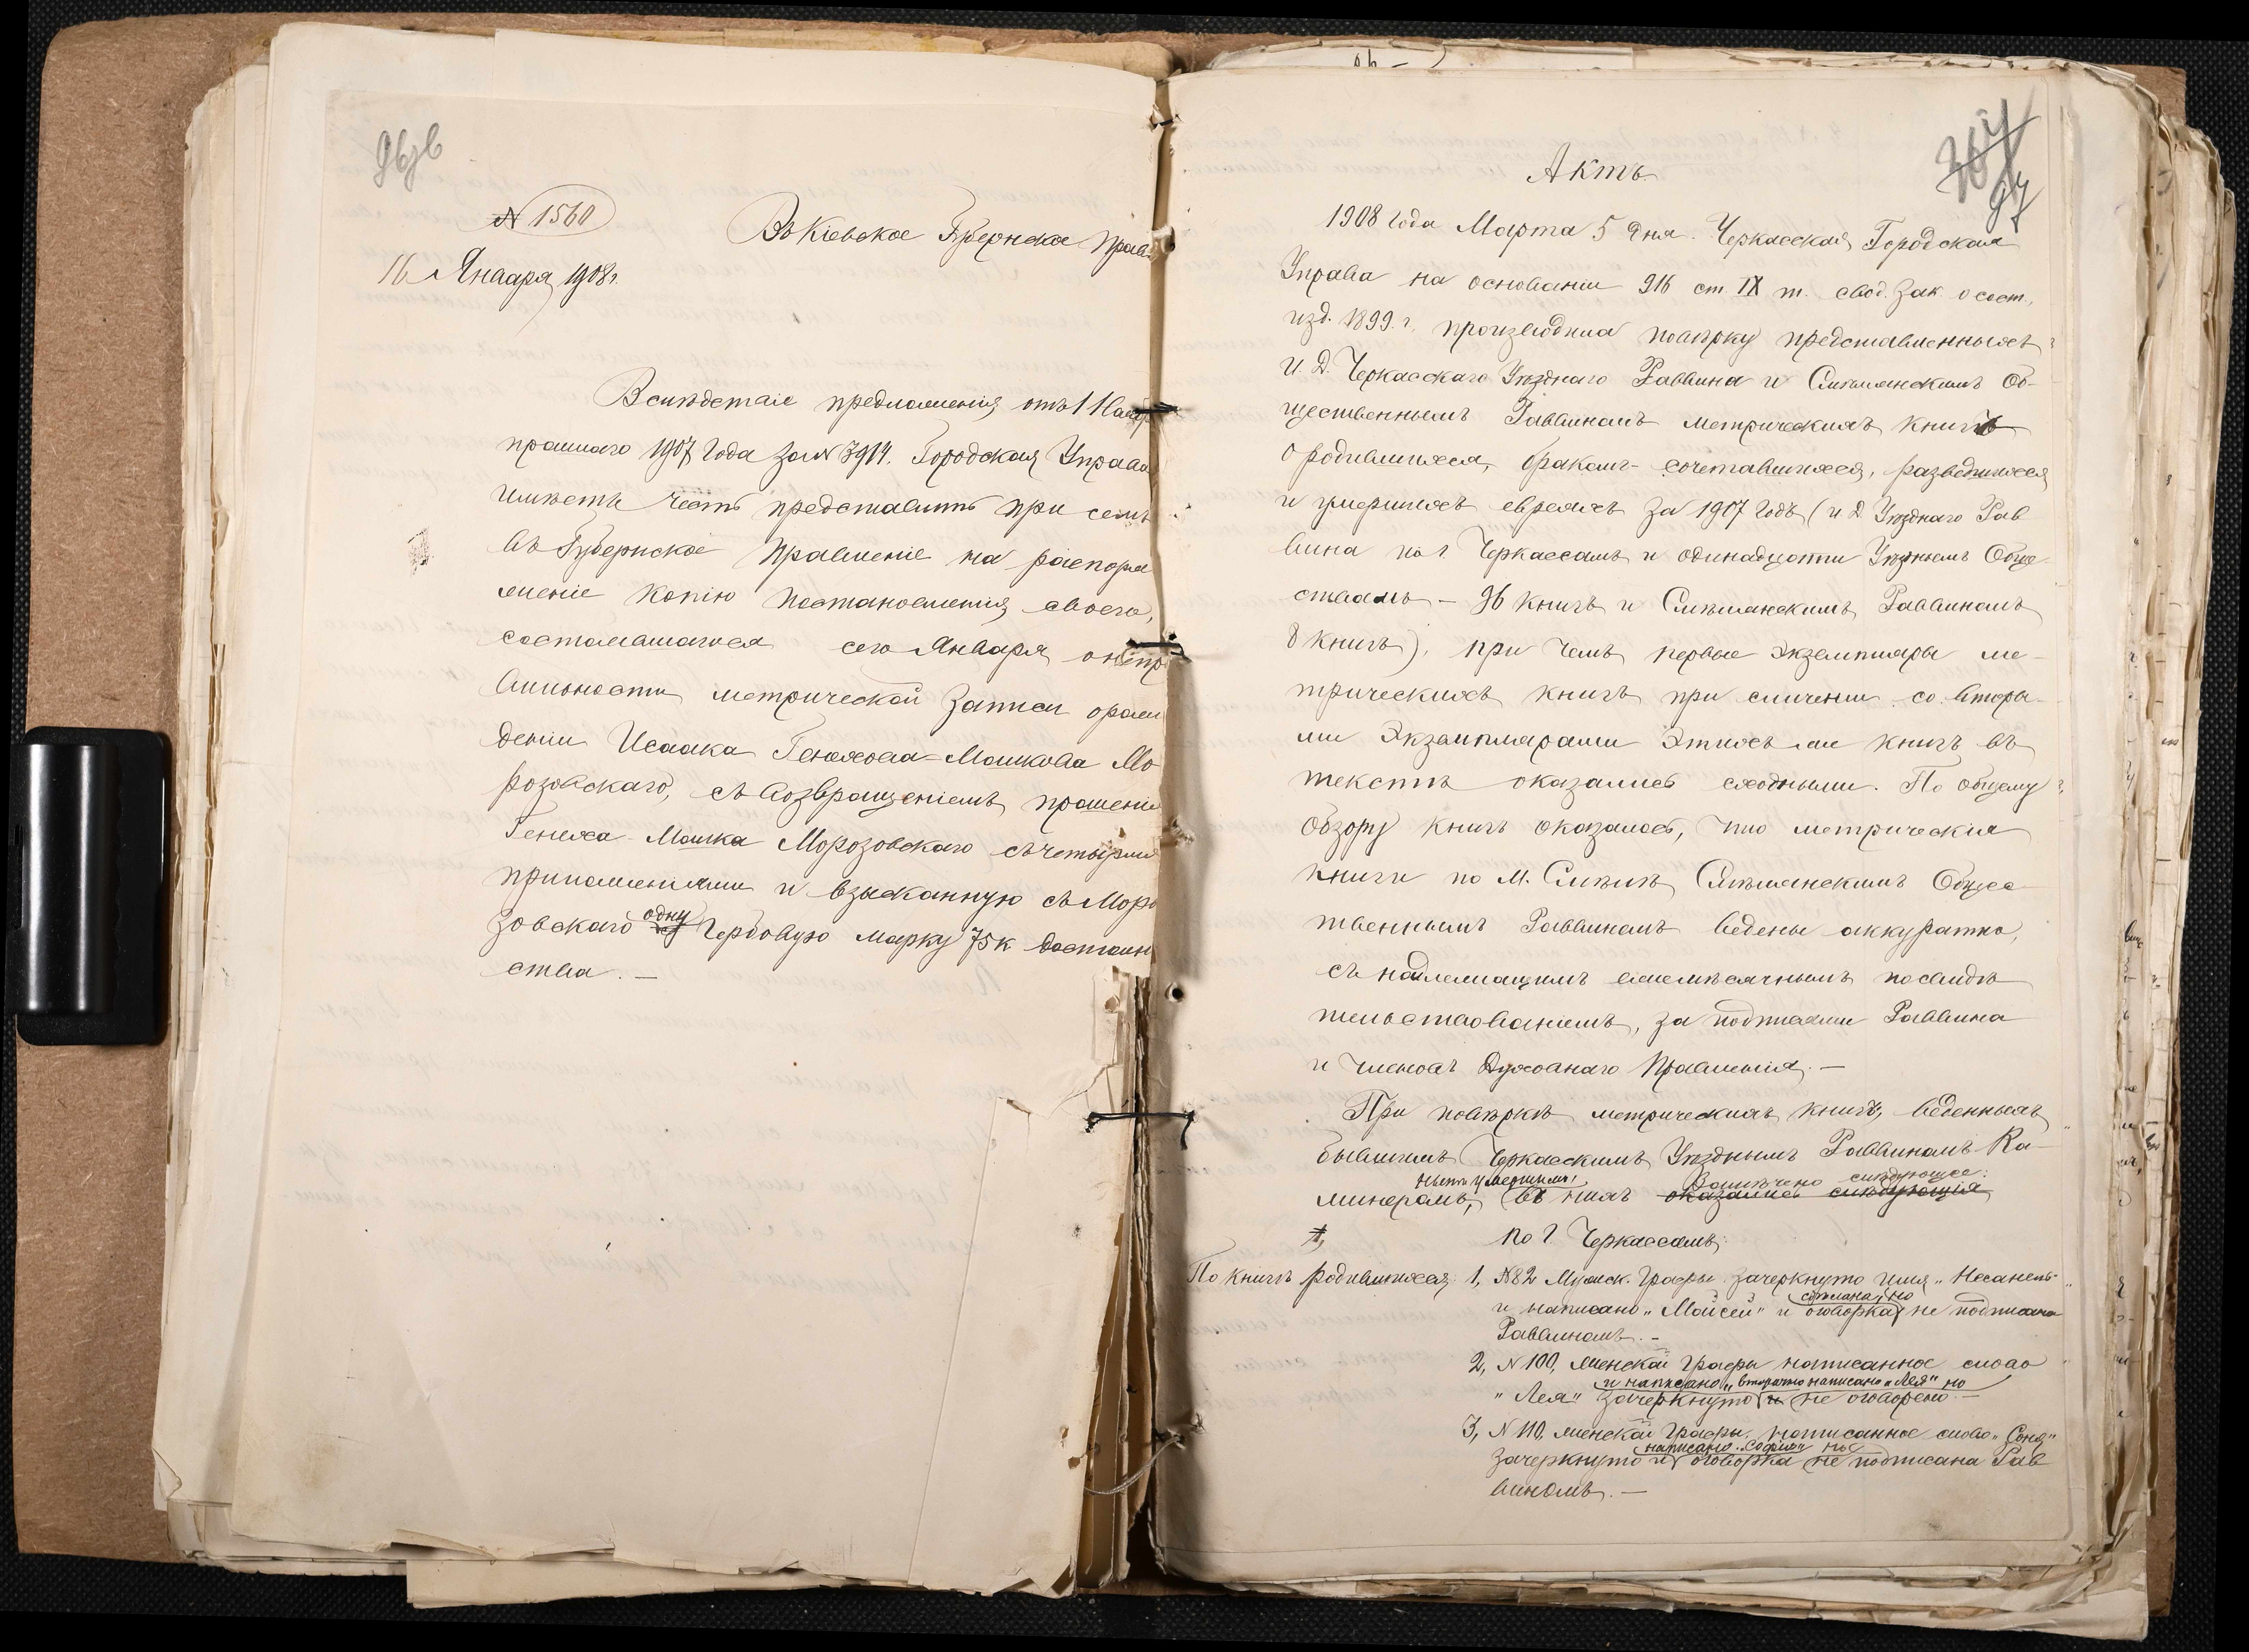 96об
№ 1560
Въ Кіевское Губернское Прав
16 Января 1908 г.
Вслѣдствіе предложенія отъ 1 Ноябр
прошлаго 1907 года за № 3914. Городская Управа
имѣетъ честь представить при семъ
въ Губернское Правленіе на распоря
женіе копію постановленія своего,
состоявшагося сего Января о непра
вильности метрической записи о рож
деніи Исаака Генахова-Мошкова Мо
розовскаго, съ возвращеніемъ прошенія
Генаха-Мошка Морозовскаго съ четырмя
приложеніями и взысканную съ Моро
зовскаго одну гербовую марку 75 к. достоин
ства. —
97
Актъ
1908 года Марта 5 дня. Черкасская Городская
Управа на основаніи 916 ст. IX т. свод. Зак. о сост.,
изд. 1899 г., производила повѣрку представленныхъ
И. Д. Черкасскаго Уѣзднаго Раввина и Смѣлянскимъ Об-
щественнымъ Раввиномъ метрическихъ книгъ
о родившихся, бракомъ-сочетавшихся, разведшихся
и умершихъ евреяхъ за 1907 годъ (и Д Уѣзднаго Рав
вина по г. Черкассамъ и одинадцати Уѣзднымъ Обще
ствамъ – 96 книгъ и Смѣлянскимъ Раввиномъ
8 книгъ), при чемъ первые экземпляры ме-
трическихъ книгъ при сличеніи со вторы-
ми экземплярами этихъ же книгъ въ
текстѣ оказались сходными. По общему
обзору книгъ оказалось, что метрическія
книги по М. Смѣлѣ Смѣлянскимъ Общес
твеннымъ Раввиномъ ведены аккуратно,
съ надлежащимъ ежемѣсячнымъ посвидѣ
тельствованіемъ, за подписями Раввина
и членовъ Духовнаго Правленія. —
При повѣркѣ метрическихъ книгъ, веденныхъ
бывшимъ Черкасскимъ Уѣзднымъ Раввиномъ Ка-
нынѣ умершимъ, замѣчено слѣдующее:
минеромъ, въ нихъ оказались слѣдующія
1, по г Черкассамъ:
По книгѣ родившихся 1, № 82 Мужск. графы зачеркнуто имя „Несанель“
сдѣлана, но
и написано „Мойсей“ и оговорка не подписана
Раввиномъ. –
2, № 100, женской графы написанное слово
и написано „ вторично написано „Лея“ но
„Лея“ зачеркнуто и не оговорено. –
3, № 110, женской графы, написанное слово „Соня“
написано „Софія“ но
зачеркнуто и оговорка не подписана Рав
виномъ. —